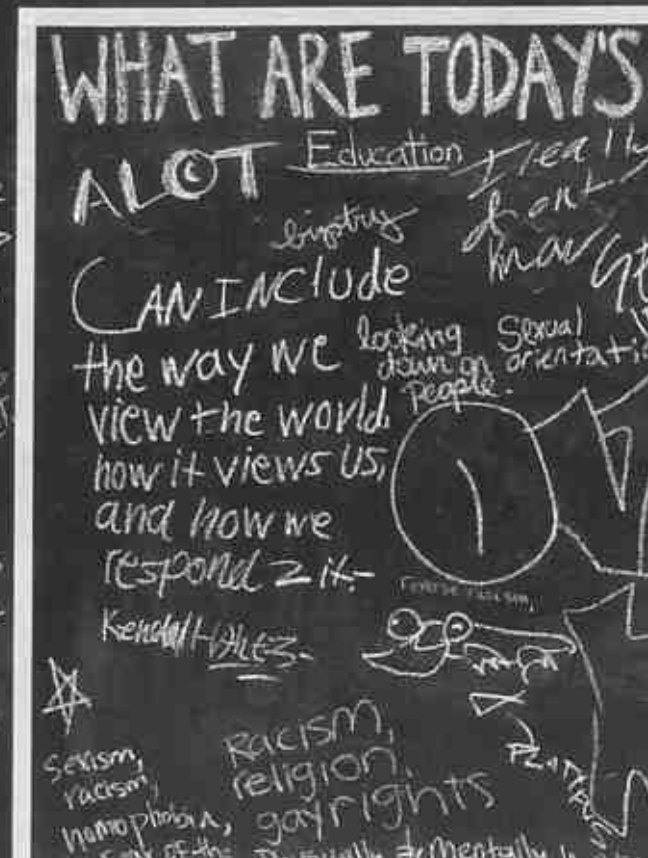 WHAT ARE TODAY'S
ALOT
Education
I really
don't
know
bigotry
CAN INCLUDE
the way we
view the world,
how it views us,
and how we
respond 2 it-
looking
down on
People.
Sexual
reverse racism,
PLATYPUS
Sexism,
racism,
homophobia,
Racism,
religion,
gay rights